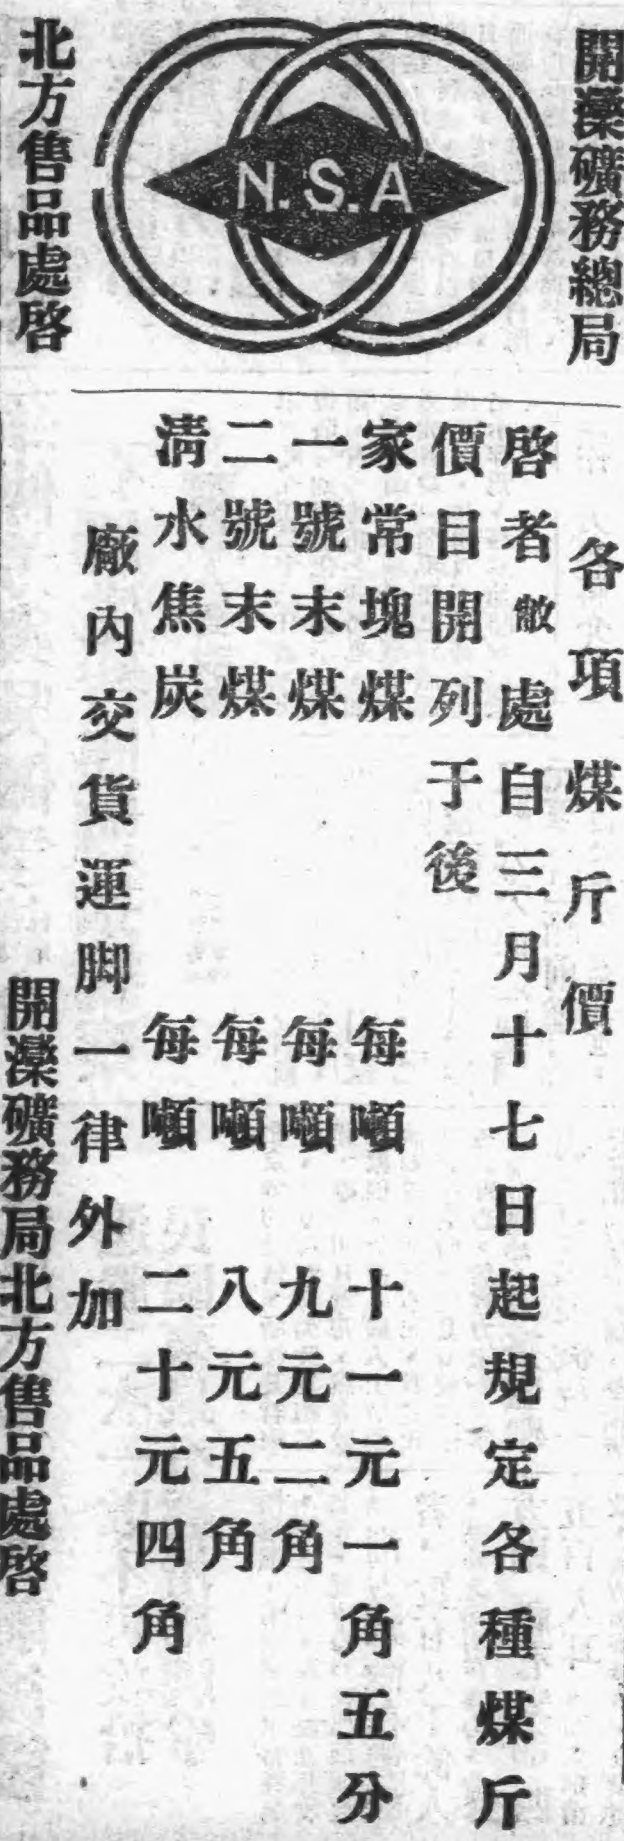 開灤礦務總局
N.S.A
北方售品處啓
各項煤斤價
啓者敝處自三月十七日起規定各種煤斤
價目開列于後
家常塊煤 每噸 十一元一角五分
一號末煤 每噸 九元二角
二號末煤 每噸 八元五角
清水焦炭 每噸 二十元四角
廠內交貨運脚一律外加
開灤礦務局北方售品處啓